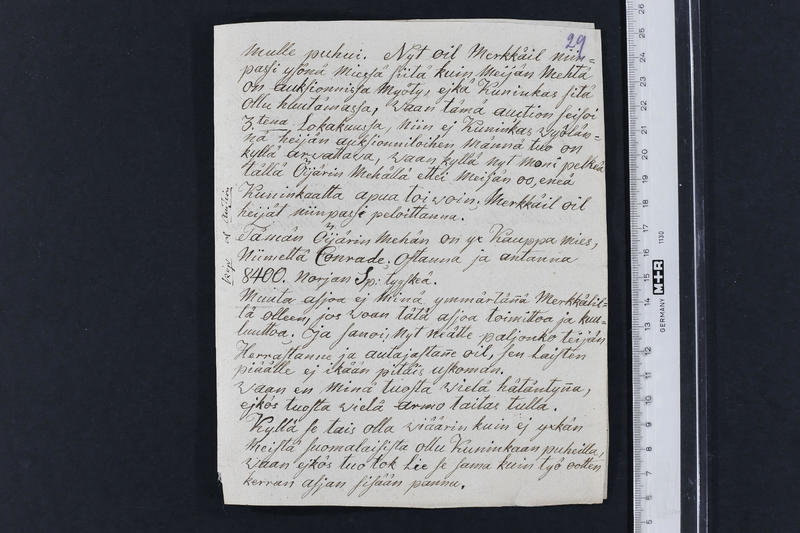 29
mulle puhui. Nyt oil Merkkäil niin=
pasji yönä miesjä sitä kuin meijän Mehtä
on auksionnissa Myöty, ejkä Kuninkas sitä
ollu huutamassa, waan tämä auction seisoi
3.tena Lokakuussa, niin ej Kuninkas
nä heijän auksionniloihen Männä tuo on
kyllä arwattawa, waan kyllä nyt moni pelkeä
tällä Öijärin Mehällä ettei meijän oo, eneä
Kuninkaalta apua toiwoin, Merkkäil oil
heijät niinpasje peloittanna.
Tämän Öijärin Mehän on yx Kauppa mies,
Niimeltä Conrade. Ostanna ja antanna
8400. Norjan Sp: tyskeä.
Muuta asjoa ej minä ymmärtänä Merkkäil=
lä olleen, jos waan tätä asjoa toimittoa ja kuu=
luttoa. Ja sanoi, Nyt neätte paljonko teijän
Herrastanne ja autajastane oil, sen laisten
piäälle ej ikään pitäis uskoman.
Waan en Minä tuosta wielä hätäntynä,
ejkös tuosta wielä armo taitas tulla.
Kyllä se tais olla wiäärin kuin ej yxkän
meistä suomalaisista ollu Kuninkaan puheilla,
waan ejkös tuo tok Lie se sama kuin työ ootten
kerran asjan sisään pannu.
GERMANY
M+R
1130
26
25
24
23
22
21
20
19
18
17
16
15
14
13
12
11
10
9
8
7
6
5